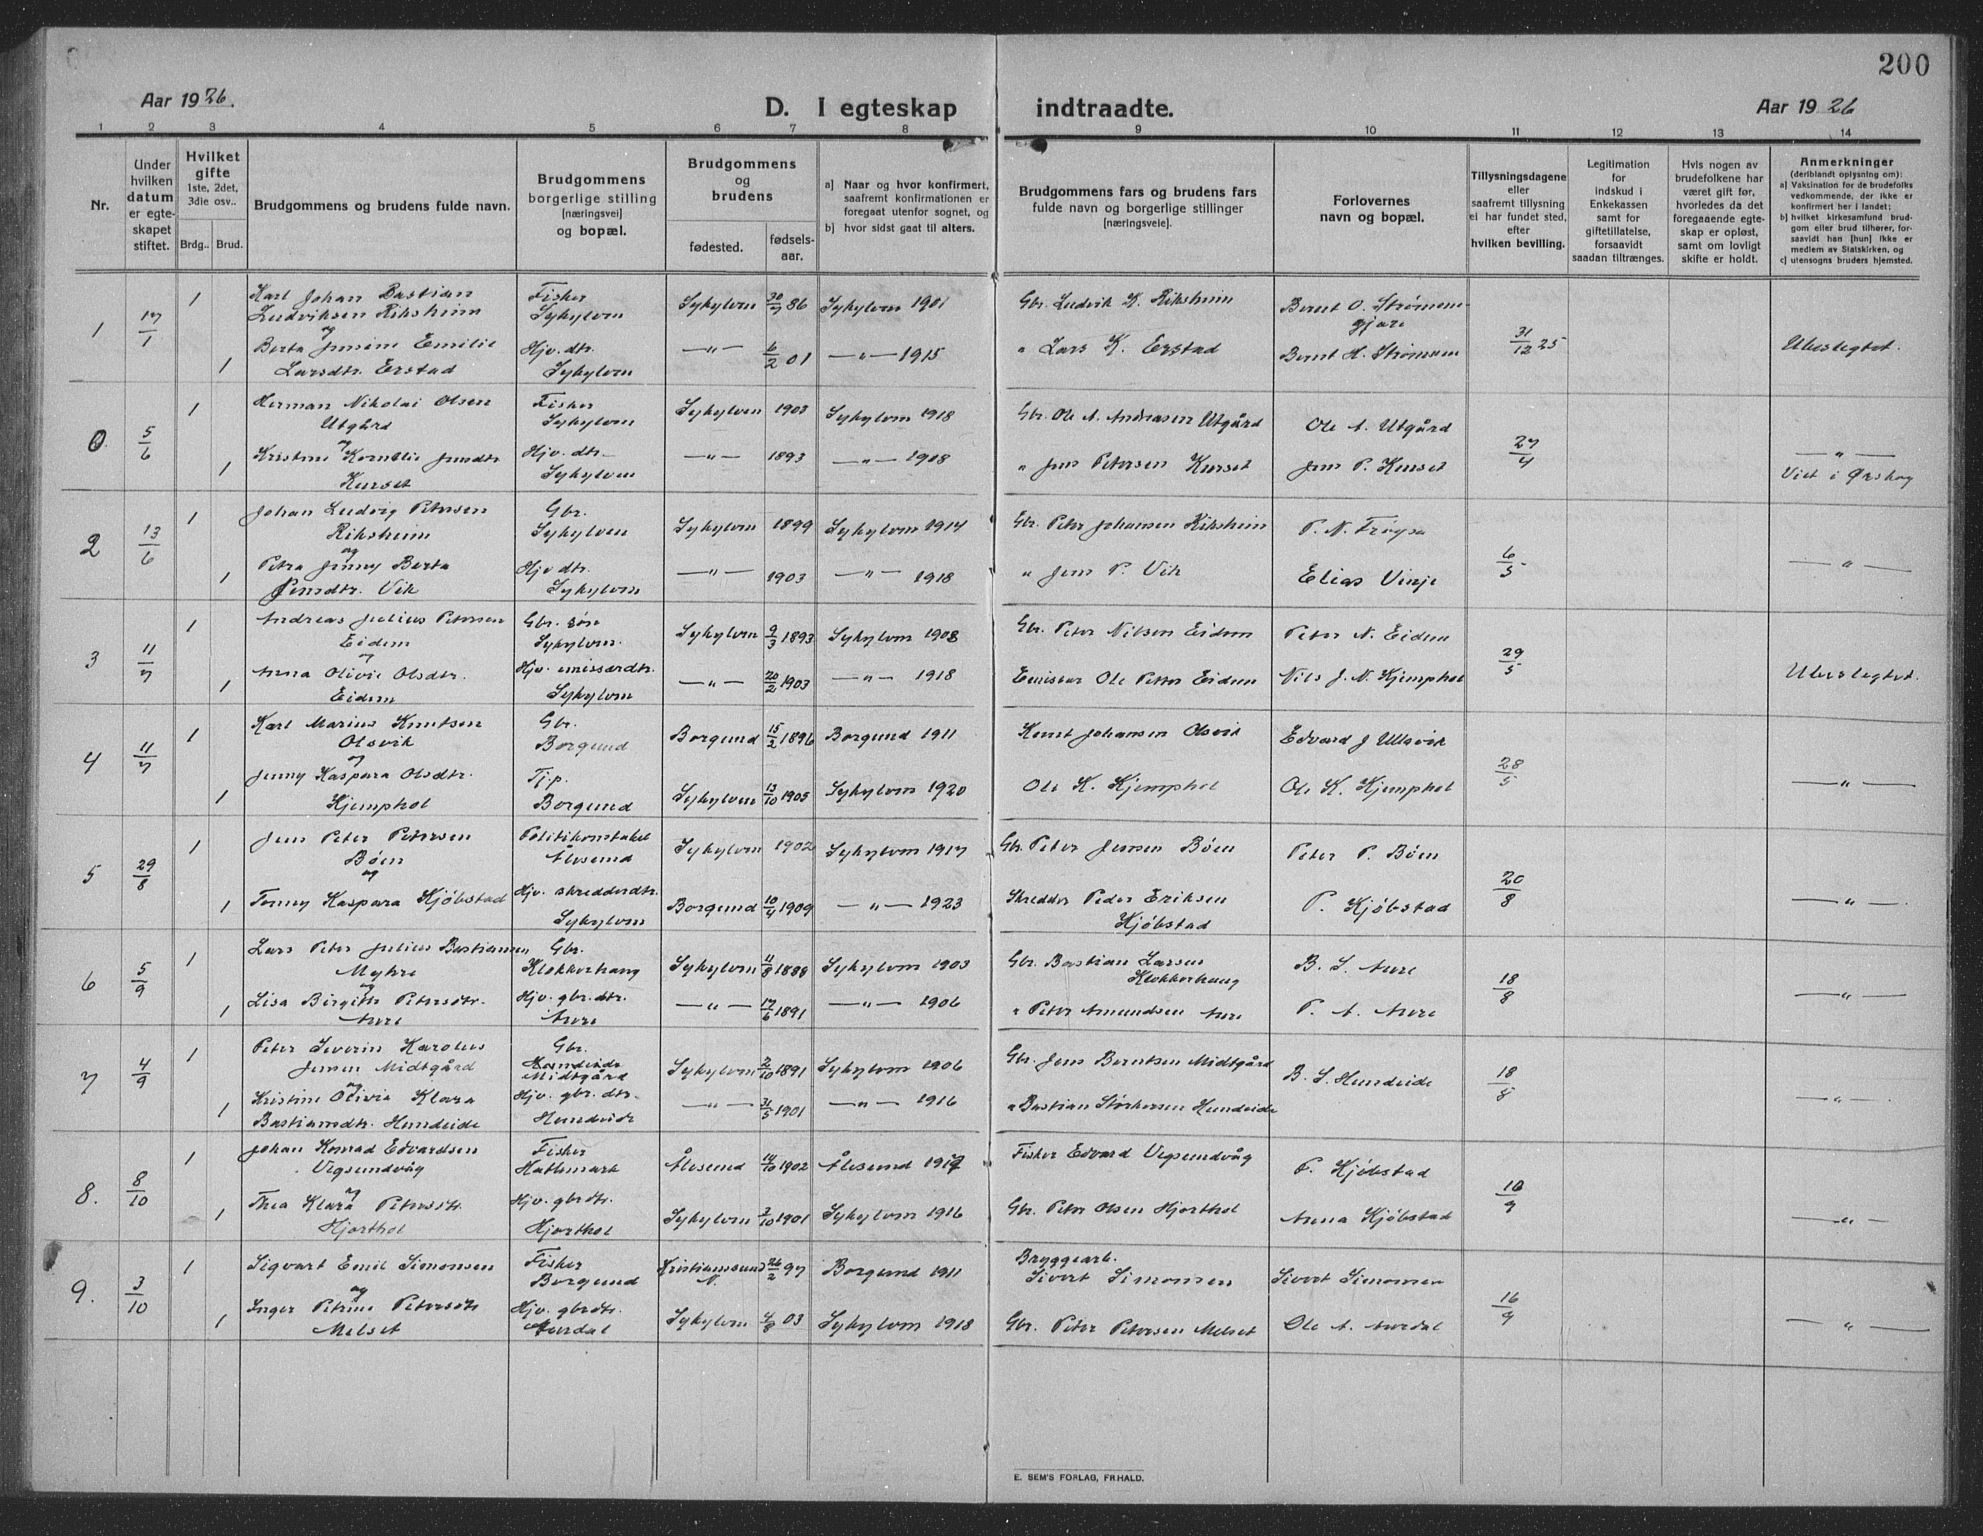 200
Aar 1926.
D. I egteskap indtraadte.
Aar 1926
1 2 3 4 5 6 7 8 9 10 11 12 13 14
Nr.
Under hvilken datum er egteskapet stiftet.
Hvilket gifte 1ste, 2det, 3die osv..
Brdg.. Brud.
Brudgommens og brudens fulde navn.
Brudgommens borgerlige stilling (næringsvei) og bopæl.
Brudgommens og brudens
fødested. fødselsaar.
a) Naar og hvor konfirmert, saafremt konfirmationen er foregaat utenfor sognet, og
b) hvor sidst gaat til alters.
Brudgommens fars og brudens fars fulde navn og borgerlige stillinger (næringsveie).
Forlovernes navn og bopæl.
Tillysningsdagene eller saafremt tillysning ei har fundet sted, efter hvilken bevilling.
Legitimation for indskud i Enkekassen samt for giftetillatelse, forsaavidt saadan tiltrænges.
Hvis nogen av brudefolkene har været gift før, hvorledes da det foregaaende egteskap er opløst, samt om lovligt skifte er holdt.
Anmerkninger (deriblandt oplysning om):
a) Vaksination for de brudefolks vedkommende, der ikke er konfirmert her i landet;
b) hvilket kirkesamfund brudgom eller brud tilhører, forsaavidt han [hun] ikke er medlem av Statskirken, og
c) utensogns bruders hjemsted.
1 17/1 1 Karl Johan Bastian Ludviksen Riksheim Fisker Sykylven Sykylven 30/7 86 Sykylven 1901 Gbr. Ludvik K. Riksheim Bernt O. Strømmegjære 31/12 25 Ubeslegtet.
og
1 Berta Jensine Emilie Larsdtr. Erstad Hjv. dtr. Sykylven —"— 6/2 01 —"— 1915 " Lars K. Erstad Bernt H. Strømmen
0. 5/6 1 Herman Nikolai Olsen Utgård Fisker Sykylven Sykylven 1903 Sykylven 1918 Gbr. Ole A. Andreasen Utgård Ole A. Utgård 27/4 —"—
og
1 Kristine Kornelie Jensdtr Kurset Hjv. dtr. Sykylven —"— 1893 —"— 1908 " Jens Petersen Kurset Jens P. Kurset Viet i Ørskog
2 13/6 1 Johan Ludvig Petersen Riksheim Gbr. Sykylven Sykylven 1899 Sykylven 1914 Gbr. Peter Johansen Riksheim P. N. Frøysa 6/5 —"—
og
1 Petra Jenny Berta Jensdtr. Vik Hjv dtr. Sykylven —"— 1903 —"— 1918 " Jens P. Vik Elias Vinje
3 11/7 1 Andreas Julius Petersen Eidem Gbr. søn Sykylven. Sykylven 9/3 1893 Sykylven 1908 Gbr. Peter Nilsen Eidem Peter N. Eidem 29/5 Ubeslegtet.
og
1 Anna Olivie Olsdtr. Eidem Hjv. emissærdtr. Sykylven —"— 20/2 1903 —"— 1918 Emissær Ole Petter Eidem Nils J. N. Hjemphol
4 11/7 1 Karl Marius Knutsen Olsvik Gbr. Borgund Borgund 15/2 1896 Borgund 1911 Knut Johansen Olsvik Edvard J Ullsvik 28/5 —"—
og
1 Jenny Kaspara Olsdtr. Hjemphol Tj.p. Borgund Sykylven 13/10 1905 Sykylven 1920 Ole K. Hjemphol Ole K. Hjemphol
5 29/8 1 Jens Peter Petersen Bøen Politikonstabel Ålesund Sykylven 1902 Sykylven 1917 Gbr. Peter Jensen Bøen Peter P. Bøen 20/8 —"—
og
1 Tomny Kaspara Hjøbstad Hjv. skreddersdtr. Sykylven Borgund 10/4 1909 —"— 1923 Skredder Peder Eriksen Hjøbstad P. Hjøbstad
6 5/9 1 Lars Peter Julius Bastiansen Myhre Gbr. Klokkerhaug Sykylven 11/8 1888 Sykylven 1903 Gbr. Bastian Larsen Klokkerhaug B. L. Aure 18/8 —"—
og
1 Lisa Birgitte Petersdtr. Aure Hjv. gbr. dtr. Aure —"— 17/6 1891 —"— 1906 " Peter Amundsen Aure P. A. Aure
7 4/9 1 Peter Severin Karolus Jensen Midtgård Gbr. Hundeide Midtgård Sykylven 2/10 1891 Sykylven 1906 Gbr. Jens Berntsen Midtgård B. S. Hundeide 18/8 —"—
og
1 Kristine Olivia Klara Bastiansdtr. Hundeide Hjv. gbr. dtr. Hundeide —"— 31/5 1901 —"— 1916 " Bastian Størkersen Hundeide
8. 8/10 1 Johan Konrad Edvardsen Vegsundvåg Fisker Hatlemark Ålesund 14/10 1902 Ålesund 1917 Fisker Edvard Vegsundvåg P. Hjøbstad 10/9 —"—
og
1 Thea Klara Petersdtr. Hjorthol Hjv. gbrdtr. Hjorthol Sykylven 3/10 1901 Sykylven 1916 Gbr. Peter Olsen Hjorthol Anna Kjøbstad
9. 3/10 1 Sigvart Emil Simonsen Fisker Borgund Kristiansund N. 26/2 97 Borgund 1911 Bryggearb. Sivert Simonsen Sivert Simonsen 16/9 —"—
og
1 Inger Petrine Petersdtr Melset Hjv. gbrdtr. Aurdal Sykylven 4/8 03 Sykylven 1918 Gbr. Peter Petersen Melset Ole A. Aurdal
E. SEM'S FORLAG, FR.HALD.